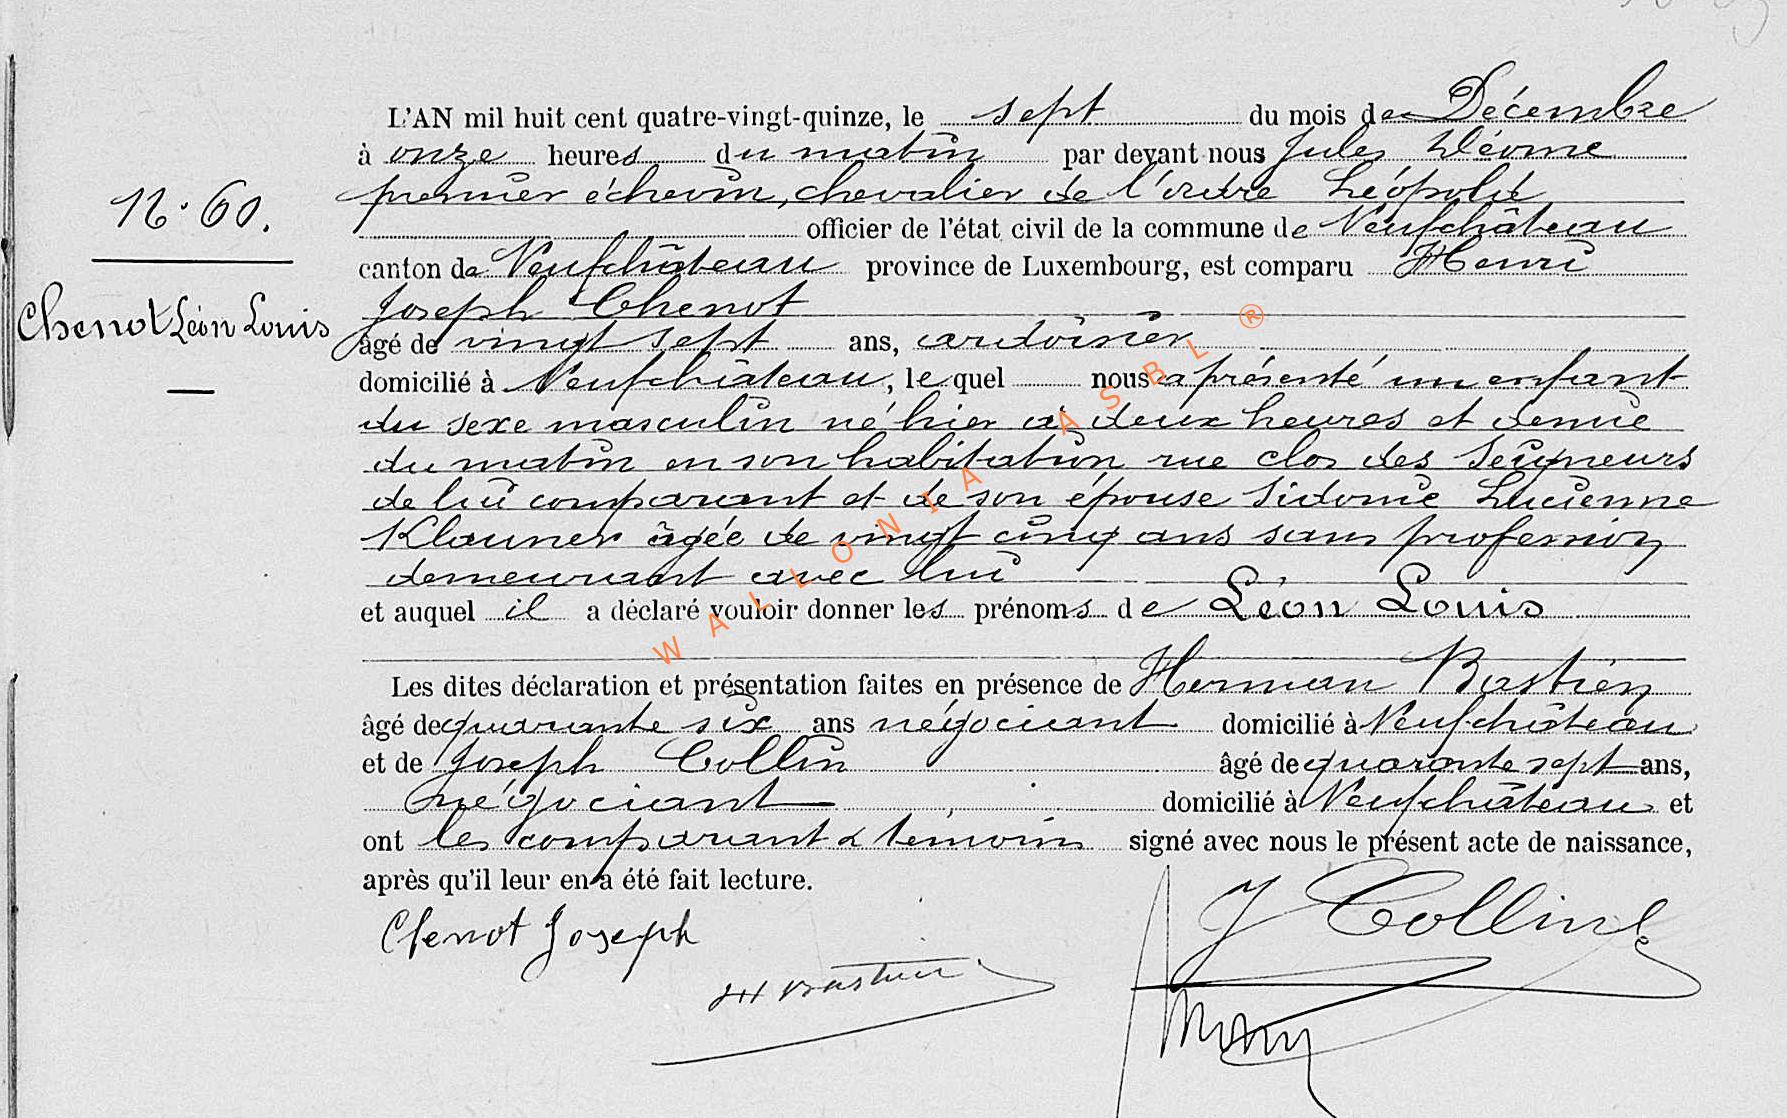 L'AN mil huit cent quatre-vingt-quinze, le sept du mois de Décembre
à onze heures du matin par devant nous Jules
premier échevin, chevalier de l'ordre Léopold
N° 60.
officier de l'état civil de la commune de Neufchâteau
canton de Neufchâteau province de Luxembourg, est comparu Henri
Chenot Léon Louis
Joseph Chenot
âgé de vingt sept ans, ardoisier
domicilié à Neufchâteau, lequel nous a présenté un enfant
du sexe masculin né hier à deux heures et demie
du matin en son habitation rue clos des Seigneurs
de lui comparant et de son épouse Sidonie Lucienne
Klauner âgée de vingt cinq ans sans profession
demeurant avec lui
et auquel il a déclaré vouloir donner les prénoms de Léon Louis
Les dites déclaration et présentation faites en présence de Herman Bastien
âgé de quarante six ans négociant domicilié à Neufchâteau
et de Joseph Collin âgé de quarante sept ans,
négociant domicilié à Neufchâteau et
ont les comparant & témoins signé avec nous le présent acte de naissance,
après qu'il leur en a été fait lecture.
Chenot Joseph
J Collin
H Bastien
WALLONIA ASBL ®